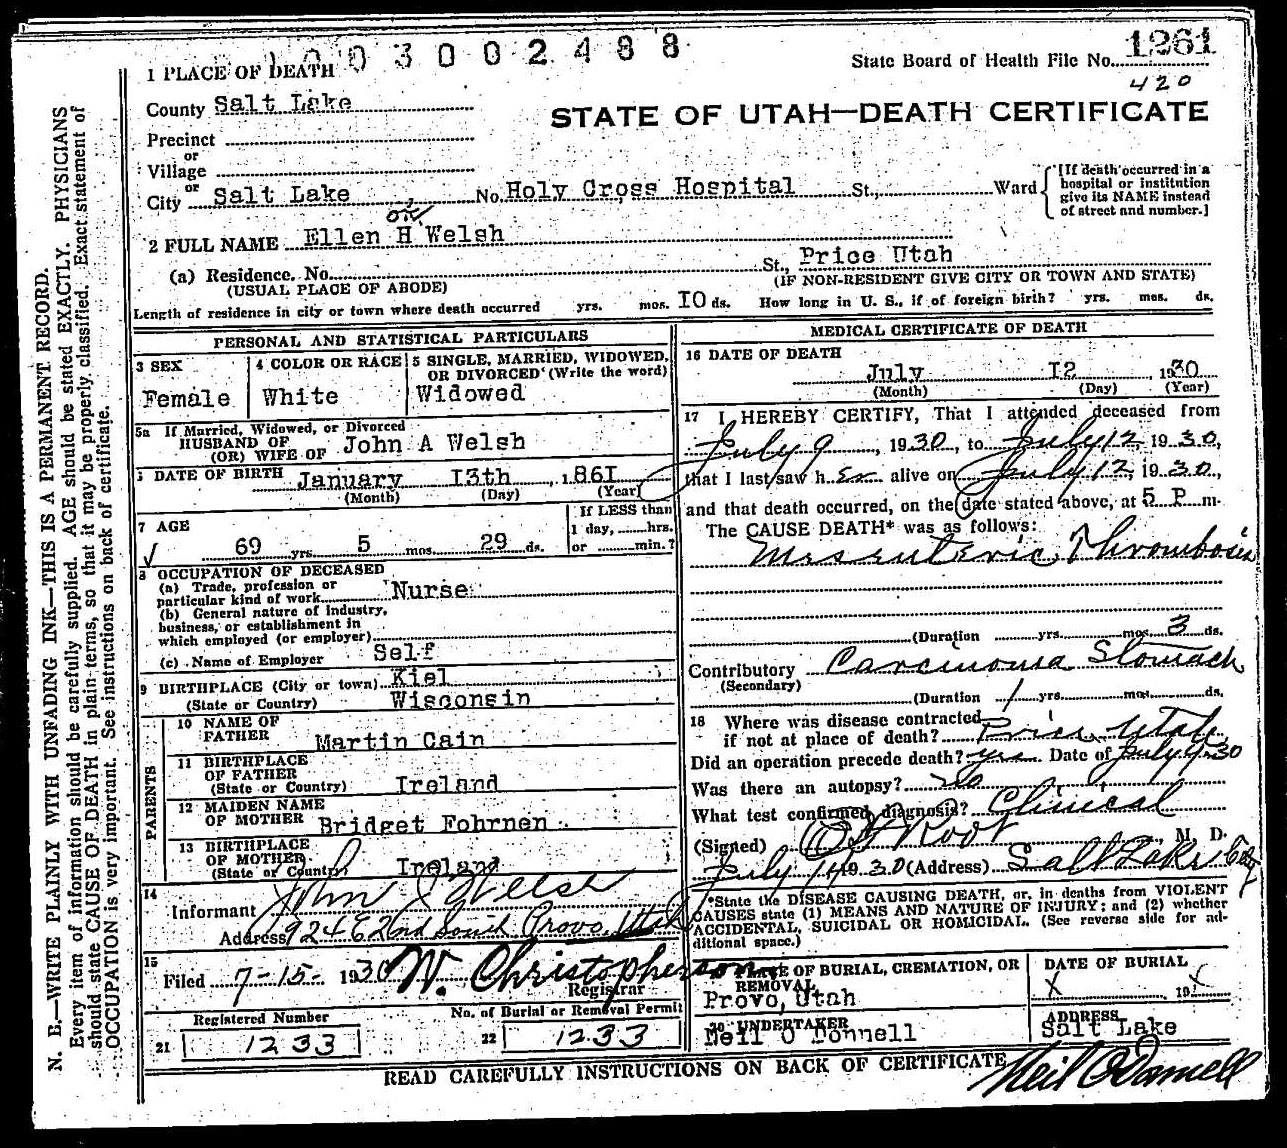 1003002488
State Board of Health File No. 1261
420
1 PLACE OF DEATH
County Salt Lake
STATE OF UTAH—DEATH CERTIFICATE
Precinct
or
Village
or
City Salt Lake No. Holy Cross Hospital St., Ward
[If death occurred in a hospital or institution give its NAME instead of street and number.]
ok
2 FULL NAME Ellen H Welsh
(a) Residence. No. St., Price Utah
(USUAL PLACE OF ABODE) (IF NON-RESIDENT GIVE CITY OR TOWN AND STATE)
Length of residence in city or town where death occurred yrs. mos. 10 ds. How long in U. S., if of foreign birth? yrs. mos. ds.
PERSONAL AND STATISTICAL PARTICULARS
3 SEX
Female
4 COLOR OR RACE
White
5 SINGLE, MARRIED, WIDOWED, OR DIVORCED (Write the word)
Widowed
5a If Married, Widowed, or Divorced
HUSBAND OF
(OR) WIFE OF John A Welsh
DATE OF BIRTH January 13th, 1861
(Month) (Day) (Year)
7 AGE
69 yrs. 5 mos. 29 ds.
If LESS than
1 day, hrs.
or min.?
8 OCCUPATION OF DECEASED
(a) Trade, profession or
particular kind of work Nurse
(b) General nature of industry,
business, or establishment in
which employed (or employer)
(c) Name of Employer Self
9 BIRTHPLACE (City or town) Kiel
(State or Country) Wisconsin
PARENTS
10 NAME OF
FATHER Martin Cain
11 BIRTHPLACE
OF FATHER
(State or Country) Ireland
12 MAIDEN NAME
OF MOTHER Bridget Fohrnen
13 BIRTHPLACE
OF MOTHER
(State or Country) Ireland
14
Informant John J Welsh
Address 924 E 2nd South Provo, Utah
15
Filed 7-15- 1930 W. Christopherson
Registrar
Registered Number
21 1233
No. of Burial or Removal Permit
22 1233
MEDICAL CERTIFICATE OF DEATH
16 DATE OF DEATH
July 12 1930
(Month) (Day) (Year)
17 I HEREBY CERTIFY, That I attended deceased from
July 9, 1930, to July 12 1930,
that I last saw her alive on July 12, 1930,
and that death occurred, on the date stated above, at 5 P m.
The CAUSE DEATH* was as follows:
Messenteric Thrombosis
(Duration yrs. mos. 3 ds.
Contributory Carcinoma Stomach
(Secondary)
(Duration 1 yrs. mos. ds.
18 Where was disease contracted
if not at place of death? Price, Utah
Did an operation precede death? yes Date of July 9-30
Was there an autopsy? no
What test confirmed diagnosis? Clinical
(Signed) Root, M. D.
July 14 1930 (Address) Salt Lake City
*State the DISEASE CAUSING DEATH, or, in deaths from VIOLENT
CAUSES state (1) MEANS AND NATURE OF INJURY; and (2) whether
ACCIDENTAL, SUICIDAL OR HOMICIDAL. (See reverse side for ad-
ditional space.)
PLACE OF BURIAL, CREMATION, OR
REMOVAL
Provo, Utah
DATE OF BURIAL
X 19 X
20 UNDERTAKER
Neil O Donnell
ADDRESS
Salt Lake
READ CAREFULLY INSTRUCTIONS ON BACK OF CERTIFICATE
Neil O'Donnell
N. B.—WRITE PLAINLY WITH UNFADING INK—THIS IS A PERMANENT RECORD.
Every item of information should be carefully supplied. AGE should be stated EXACTLY. PHYSICIANS
should state CAUSE OF DEATH in plain terms, so that it may be properly classified. Exact statement of
OCCUPATION is very important. See instructions on back of certificate.